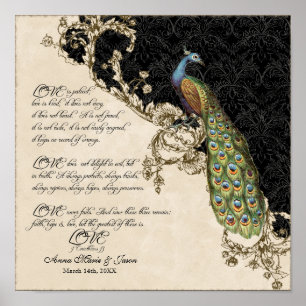 LOVE is patient,
love is kind. it does not envy,
it does not boast. It is not proud,
it is not rude, it is not easily angered,
it keeps no record of wrongs.
LOVE does not delight in evil, but in
truth. It always protects, always trusts,
always rejoices, always hopes, perseveres.
LOVE never fails. And now these three remain:
faith, hope & love, but the greatest of these is
LOVE
1 Corinthians 13
Anna Marie & Jason
March 14th, 20XX